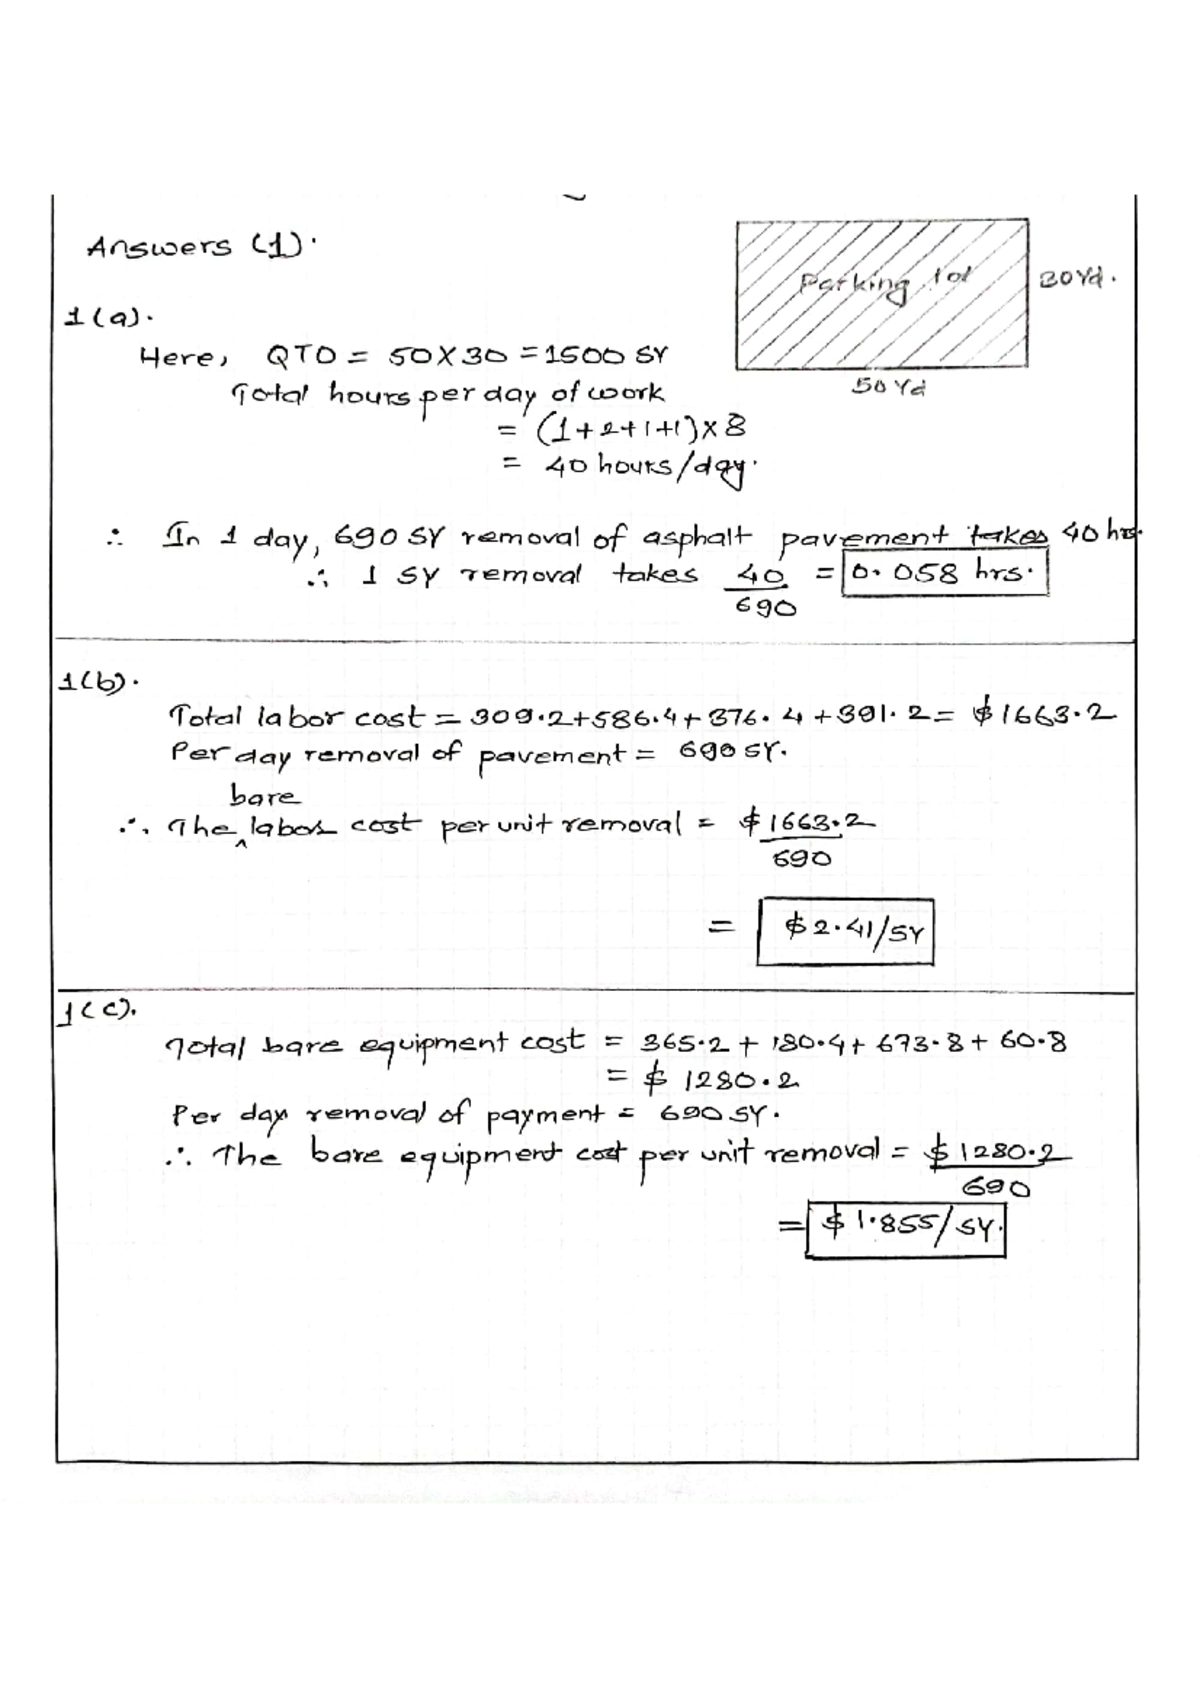 Answers (1).
Parking lot
30 Yd.
50 Yd
1(a).
Here, QTO = 50 X 30 = 1500 SY
Total hours per day of work
= (1+2+1+1) x 8
= 40 hours/day.
∴ In 1 day, 690 SY removal of asphalt pavement takes 40 hrs.
∴ 1 SY removal takes 40/690 = 0.058 hrs.
1(b).
Total labor cost = 309.2+586.4+376.4+391.2 = $1663.2
Per day removal of pavement = 690 SY.
bare
∴ The ^ labor cost per unit removal = $1663.2/690
= $2.41/SY
1(c).
Total bare equipment cost = 365.2 + 180.4 + 673.8 + 60.8
= $ 1280.2
Per day removal of payment = 690 SY.
∴ The bare equipment cost per unit removal = $1280.2/690
= $1.855/SY.